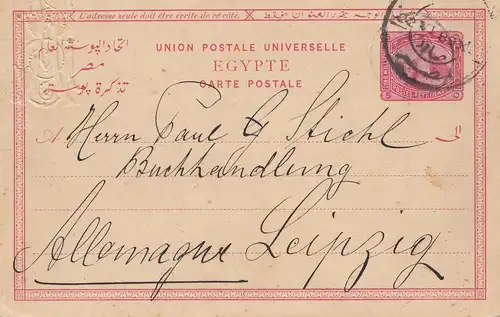 L'adresse seule doit être écrite de ce côté.
اتحاد البوستة العام
مصر
تذكرة بوستة
UNION POSTALE UNIVERSELLE
EGYPTE
CARTE POSTALE
A Herrn Paul G Stiehl الى
Buchhandlung
Allemagne Leipzig